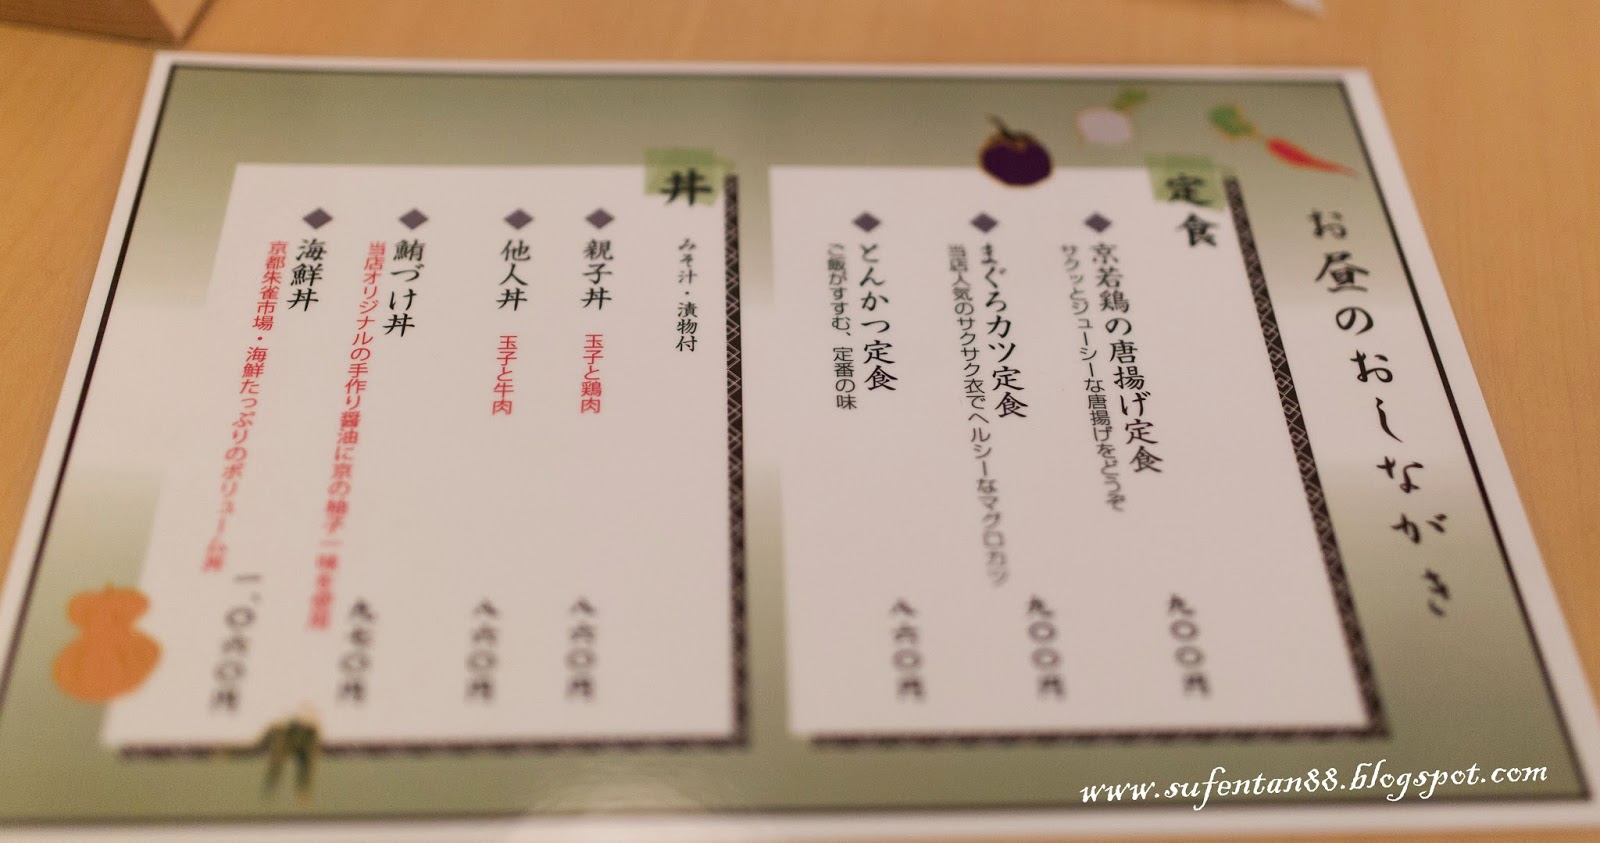 お昼のおしながき
定食
京若鶏の唐揚げ定食
サクッとジューシーな唐揚げをどうぞ
九〇〇円
まぐろカツ定食
当店人気のサクサク衣でヘルシーなマグロカツ
九〇〇円
とんかつ定食
ご飯がすすむ、定番の味
八六〇円
丼
みそ汁・漬物付
親子丼
玉子と鶏肉
八六〇円
他人丼
玉子と牛肉
八六〇円
鮪づけ丼
当店オリジナルの手作り醤油に京の柚子一味を使用
九七〇円
海鮮丼
京都朱雀市場・海鮮たっぷりのボリューム丼
一、〇六〇円
www.sufentan88.blogspot.com